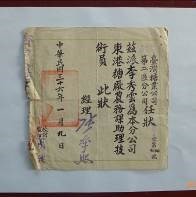 臺灣糖業公司
第二區分公司任狀
茲派李秀雲為本分公司
東港糖廠農務課助理技
術員
此狀
經理
中華民國三十六年一月九日